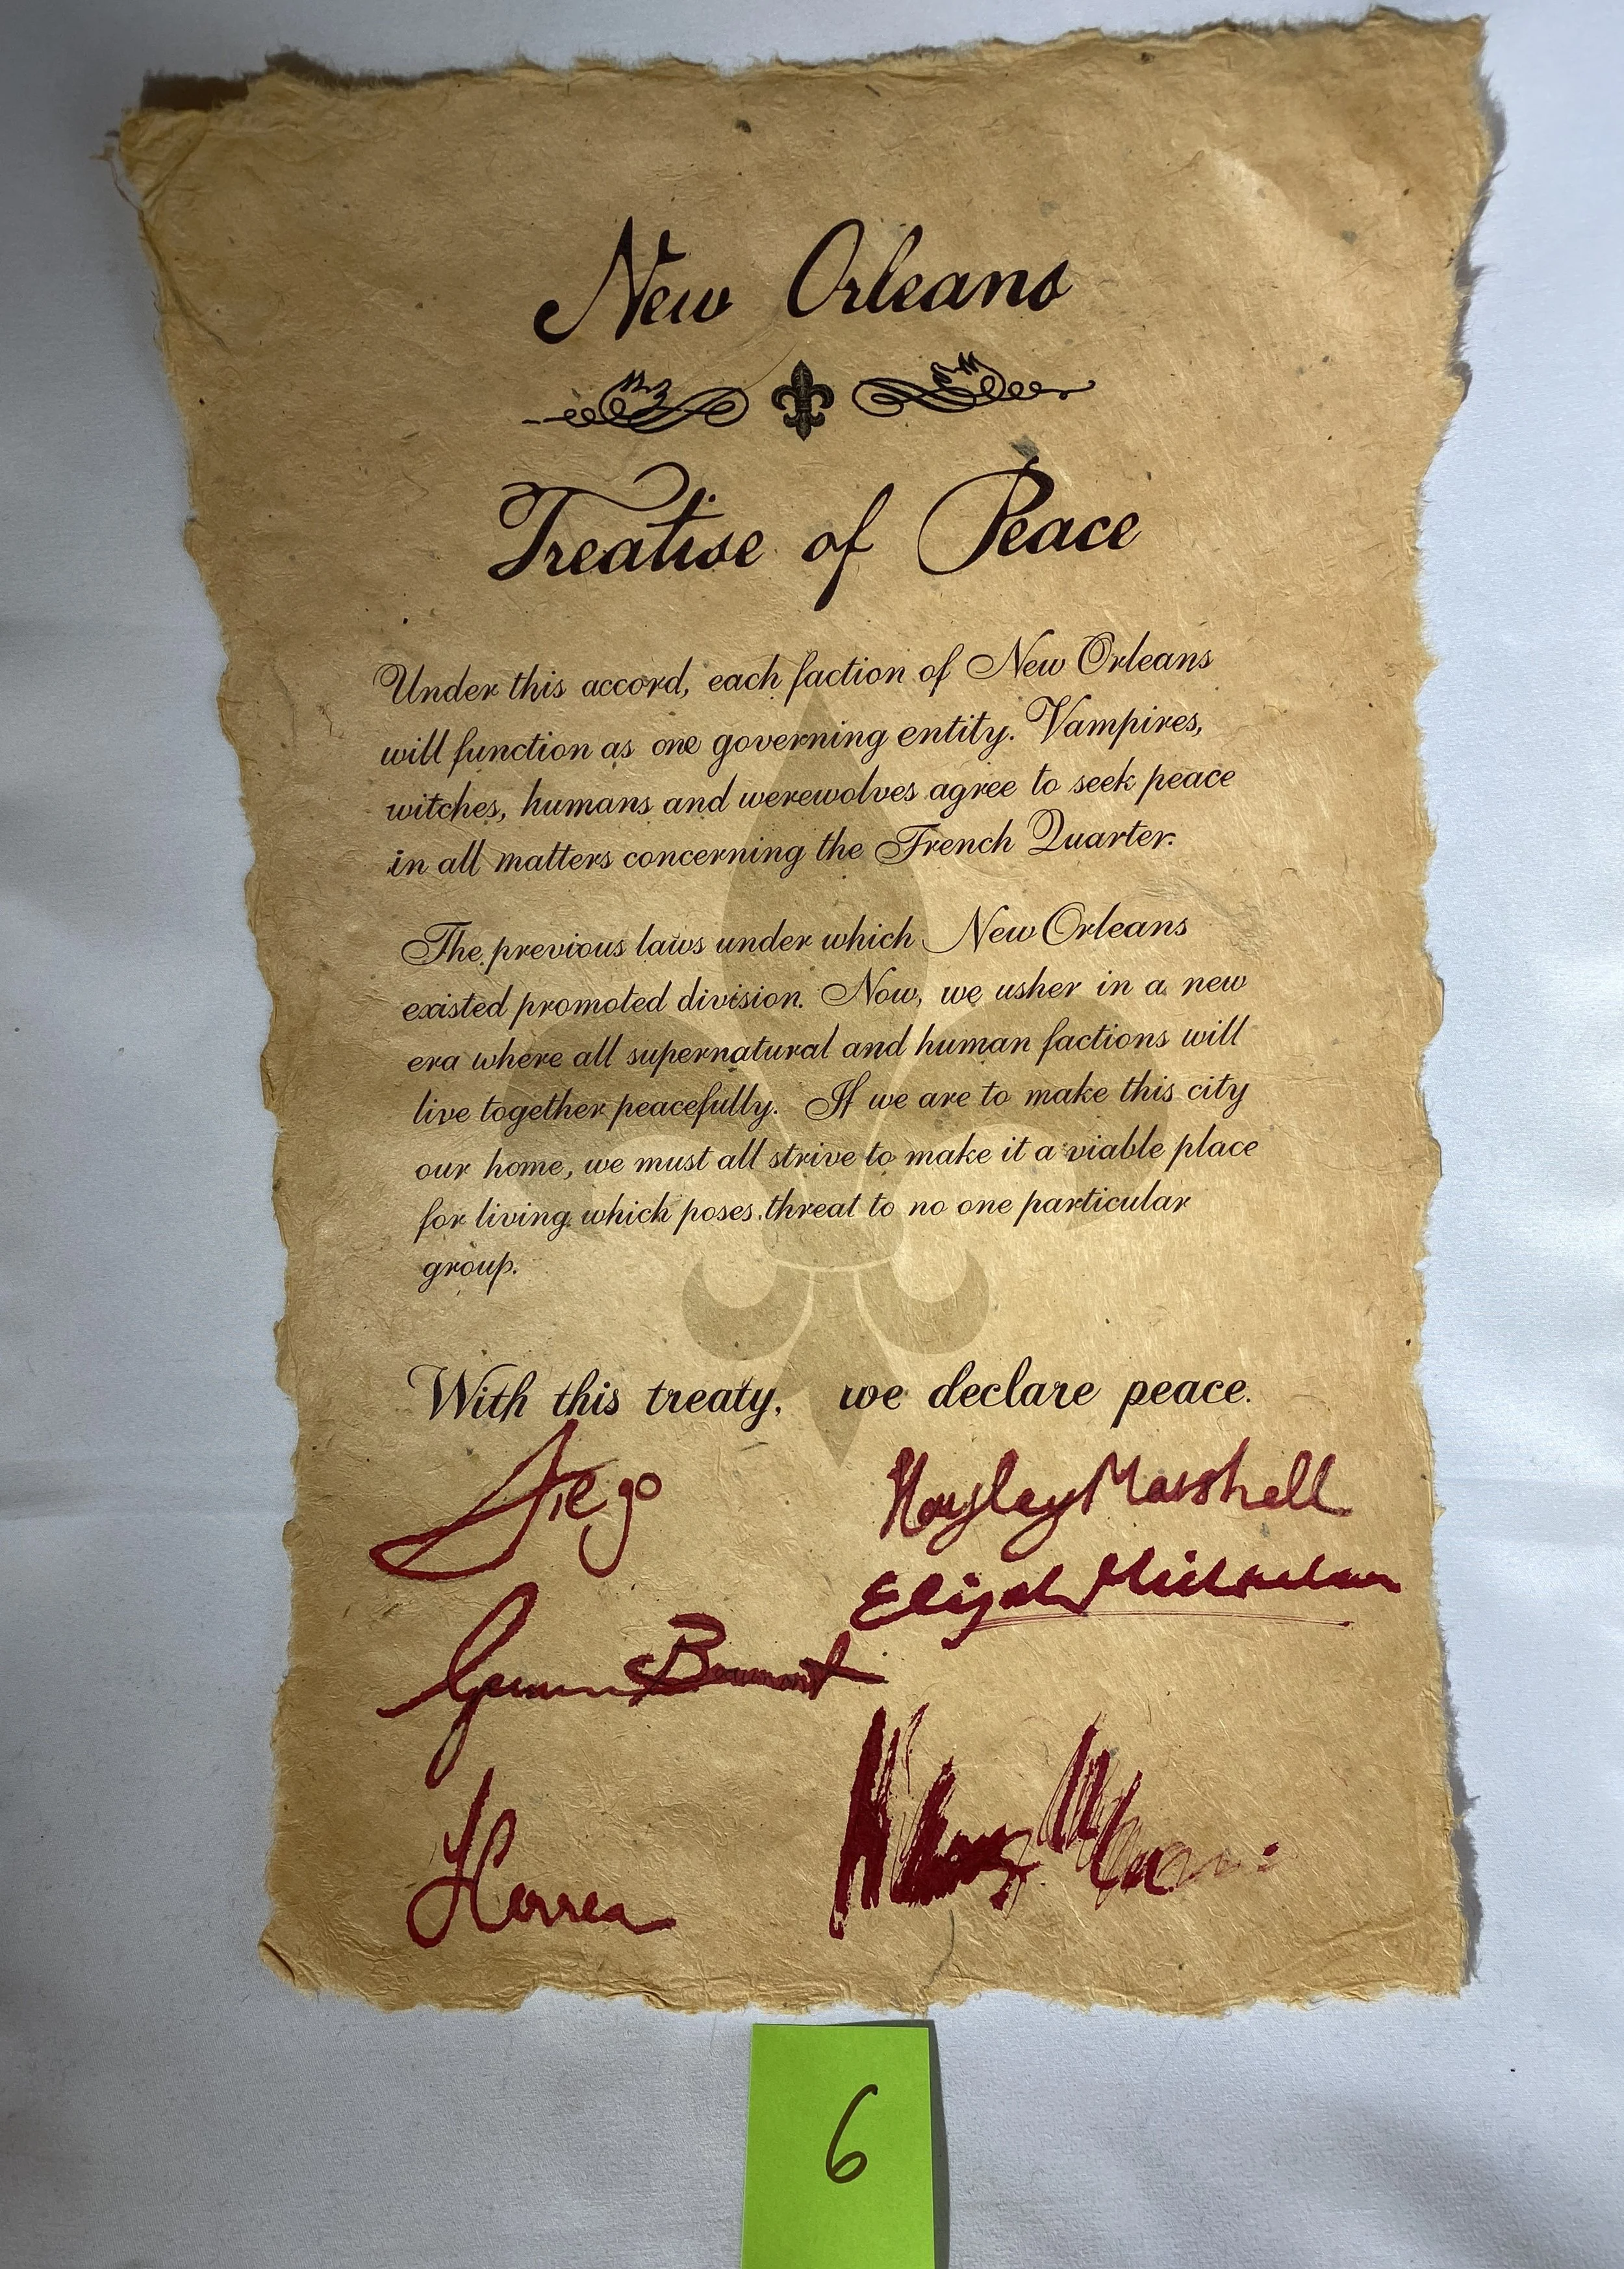 New Orleans
Treatise of Peace
Under this accord, each faction of New Orleans
will function as one governing entity. Vampires,
witches, humans and werewolves agree to seek peace
in all matters concerning the French Quarter.
The previous laws under which New Orleans
existed promoted division. Now, we usher in a new
era where all supernatural and human factions will
live together peacefully. If we are to make this city
our home, we must all strive to make it a viable place
for living which poses threat to no one particular
group.
With this treaty, we declare peace.
Diego
Hayley Marshall
Elijah Mikaelson
Beaumont
6